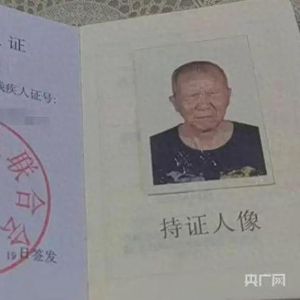 证
残疾人证号:
联合会
19日签发
持证人像
央广网